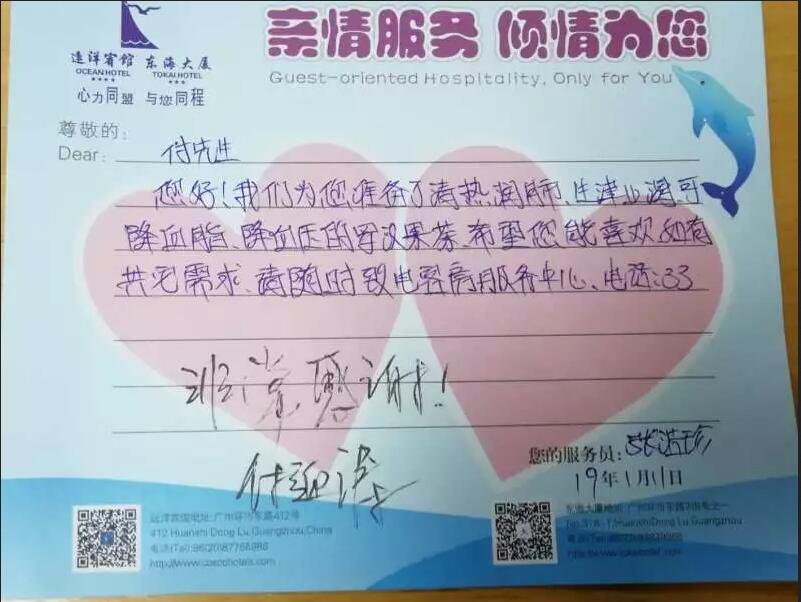 亲情服务 倾情为您
Guest-oriented Hospitality, Only for You
远洋宾馆 东海大厦
OCEAN HOTEL TOKAI HOTEL
心力同盟 与您同程
尊敬的:
Dear: 付先生
您好!我们为您准备了清热润肺、生津止渴、可
降血脂、降血压的罗汉果茶、希望您能喜欢如有
其它需求、请随时致电客房服务中心、电话:33
非常感谢!
您的服务员:
19年1月11日
远洋宾馆地址:广州环市东路412号
412 Huanshi Dong Lu Guangzhou,China
电话(Tel):86(20)87765988
http://www.coscohotels.com
东海大厦地址:广州环市东路
Dong Lu Guangzhou